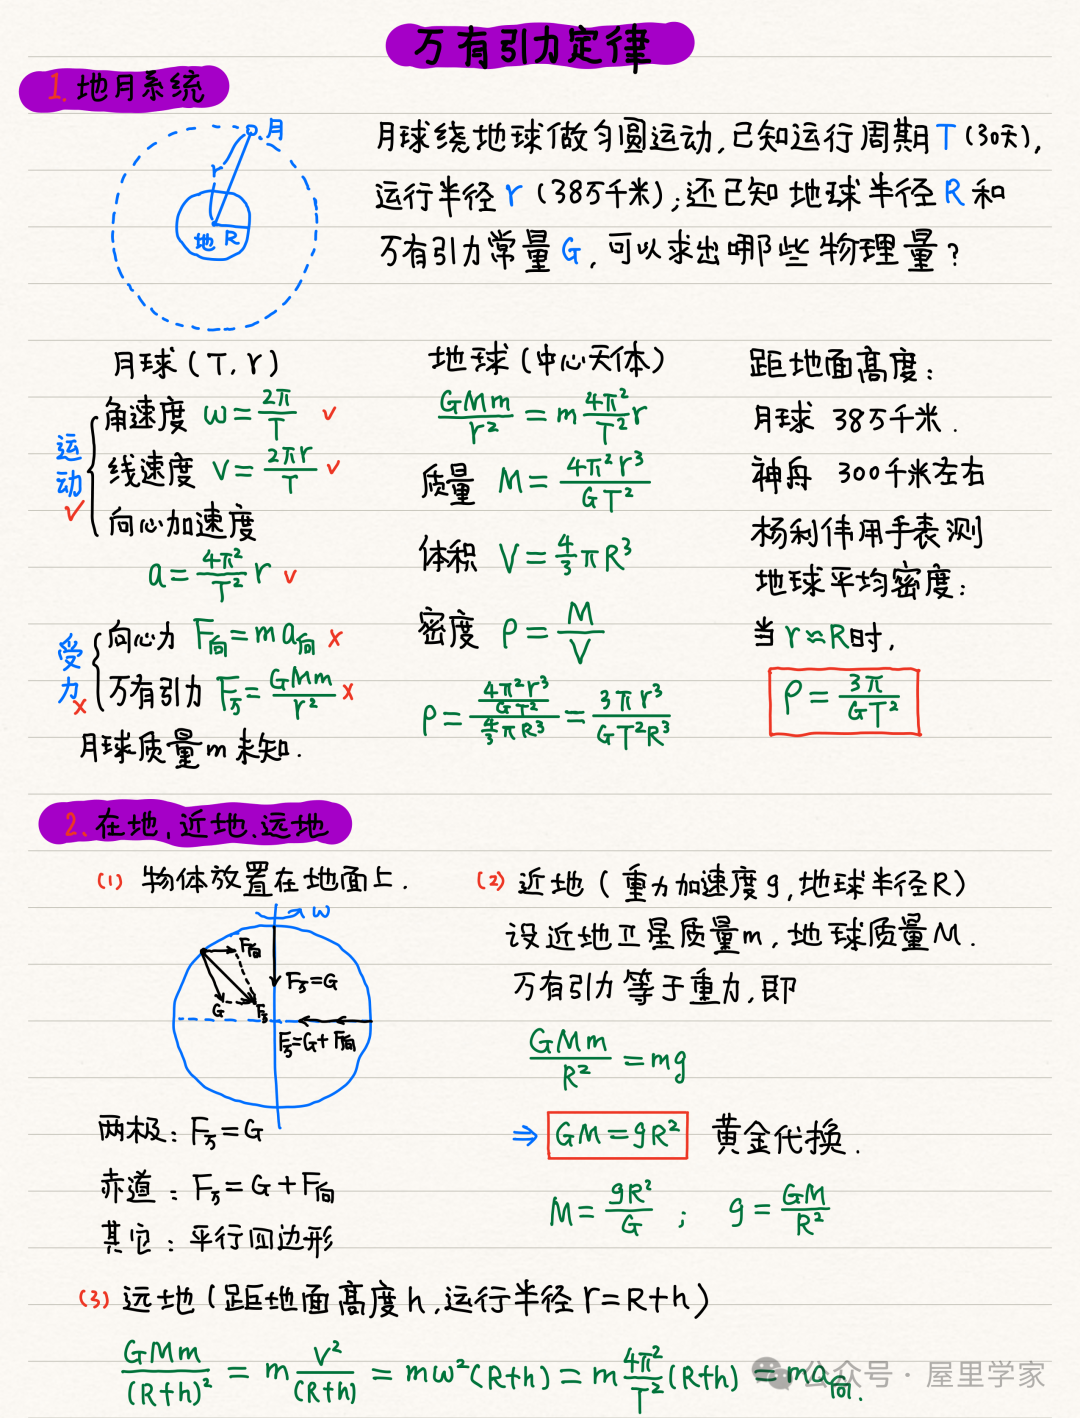 万有引力定律
1. 地月系统
月
r
地 R
月球绕地球做匀圆运动,已知运行周期T(30天),
运行半径 r (38万千米);还已知地球半径R和
万有引力常量G,可以求出哪些物理量?
月球(T, r)
运动✓
角速度 ω=2π/T ✓
线速度 V=2πr/T ✓
向心加速度
a=4π²/T² r ✓
受力×
向心力 F向=ma向 ×
万有引力 F万=GMm/r² ×
月球质量m未知.
地球(中心天体)
GMm/r² = m 4π²/T² r
质量 M=4π²r³/GT²
体积 V=4/3 πR³
密度 ρ=M/V
ρ=(4π²r³/GT²)/(4/3 πR³)=3πr³/GT²R³
距地面高度:
月球 38万千米.
神舟 300千米左右
杨利伟用手表测
地球平均密度:
当 r≈R时,
ρ=3π/GT²
2. 在地,近地.远地
(1) 物体放置在地面上.
ω
F向
G
F万
F万=G
F万=G+F向
两极: F万=G
赤道: F万=G+F向
其它: 平行四边形
(2) 近地(重力加速度g,地球半径R)
设近地卫星质量m,地球质量M.
万有引力等于重力,即
GMm/R² =mg
⇒ GM=gR² 黄金代换.
M=gR²/G ; g=GM/R²
(3) 远地(距地面高度h,运行半径r=R+h)
GMm/(R+h)² = m V²/(R+h) = mω²(R+h)=m 4π²/T² (R+h) =ma向.
公众号·屋里学家